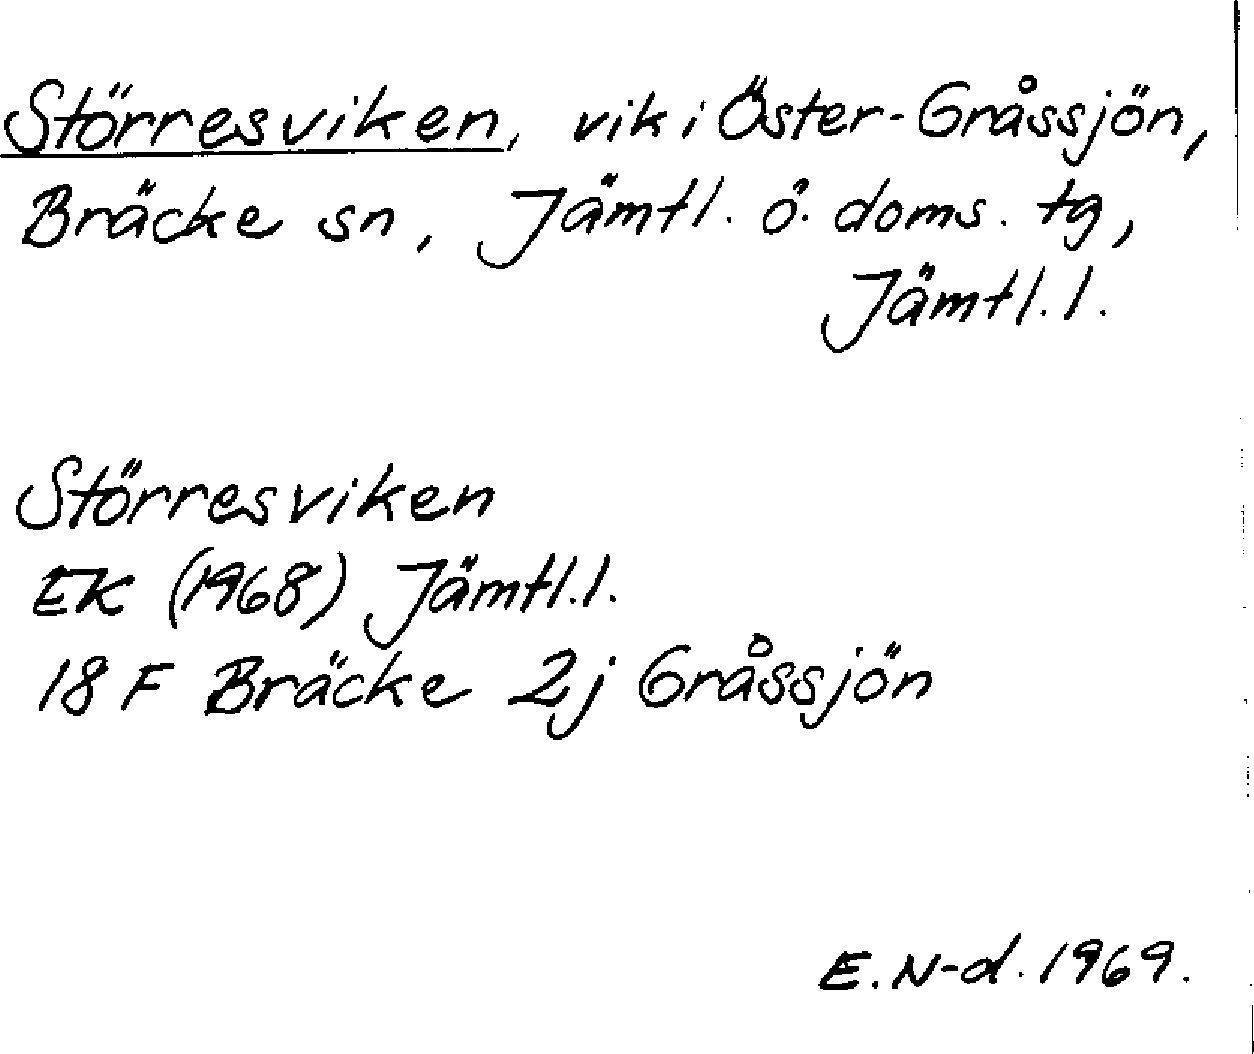 Störresviken, vik i Öster-Gråssjön,
Bräcke sn, Jämtl. ö. doms. tg,
Jämtl. l.
Störresviken
EK (1968) Jämtl. l.
18 F Bräcke 2j Gråssjön
E. N-d. 1969.